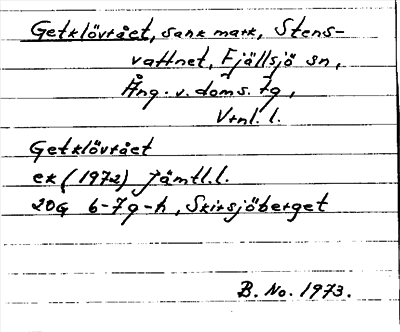 Getklövtået, sank mark, Stens-
vattnet, Fjällsjö sn,
Ång. v. doms. tg,
Vrnl. l.
Getklövtået
ek (1972) Jämtl. l.
20G 6-7g-h, Skirsjöberget
B. No. 1973.